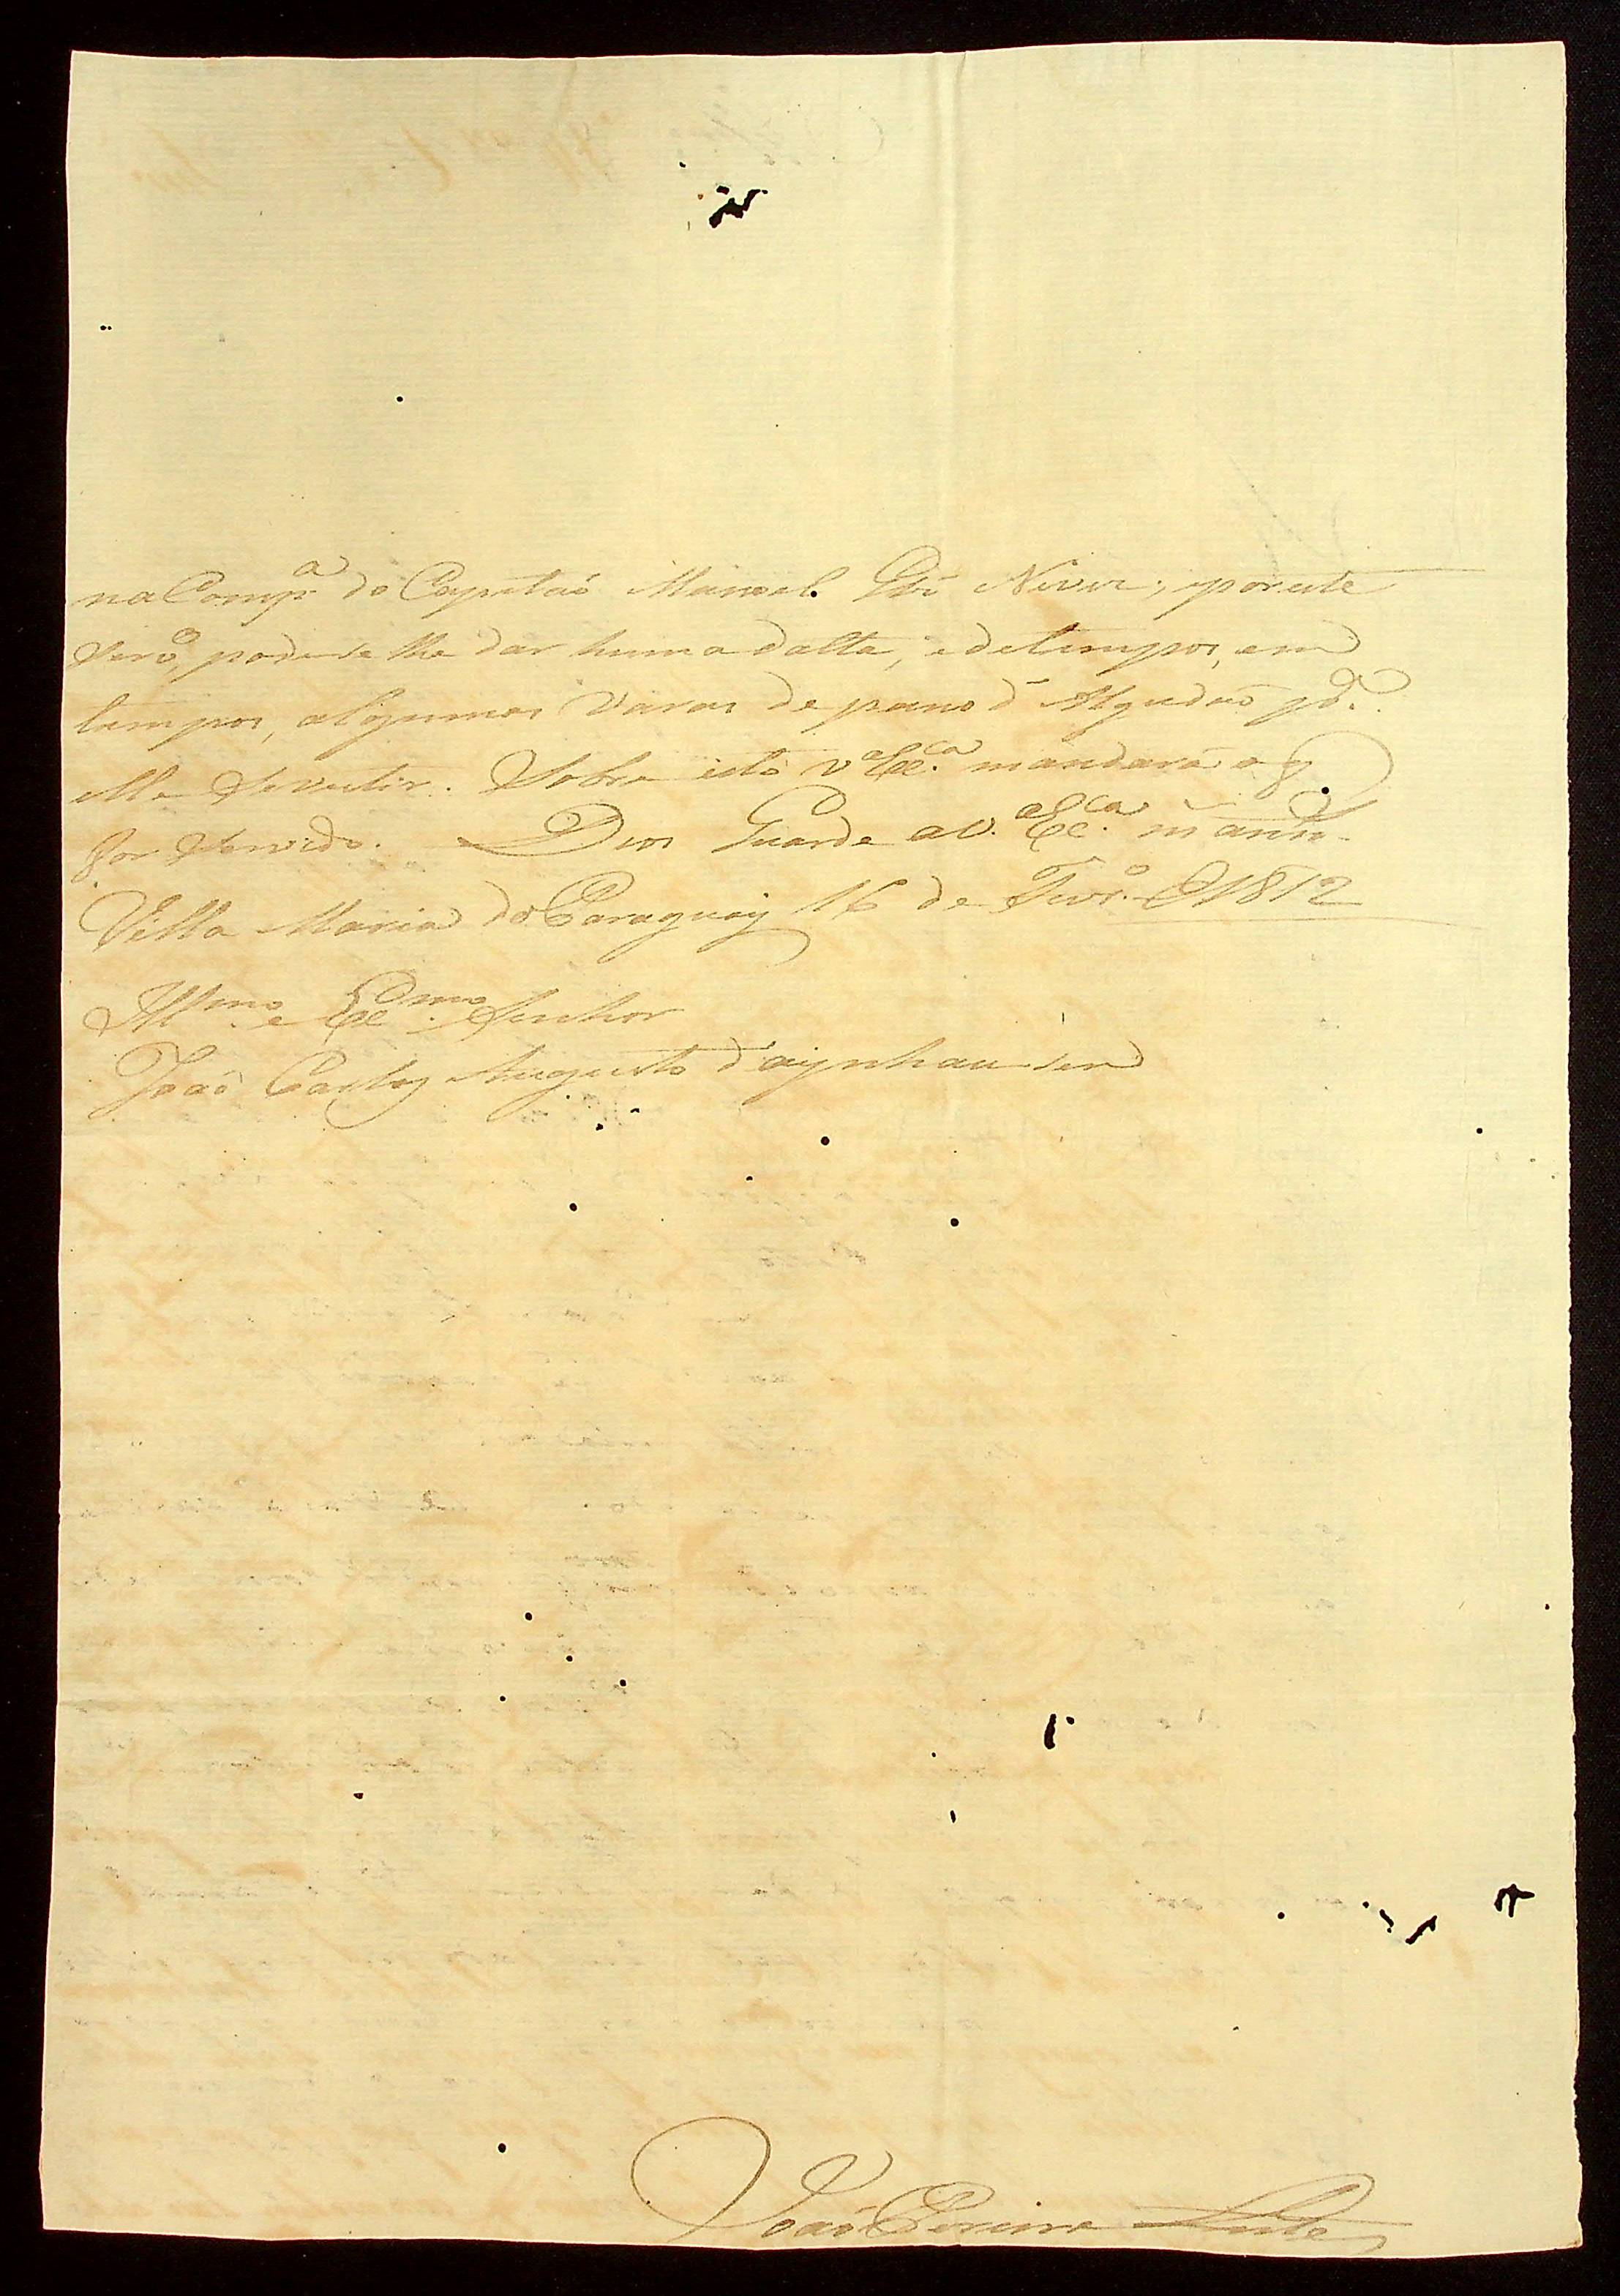 na Comp.a do Capitaõ Manoel Glz Neves; por este
pode se lhe dar huma dalta, e de tempos, em
tempos, algumas Varas de pano d' Algudaõ pa.
elle se vestir. Sobre isto V.a Exc.ca mandará o q
for servido. Deos Guarde a V. Exc.ca m. ann.
Villa Maria do Paraguay 16 de Fevr.o d' 1812
Ill.mo e Exc.mo Senhor
Joaõ Carlos Augusto d' aynhausen
Joaõ Pereira Leite